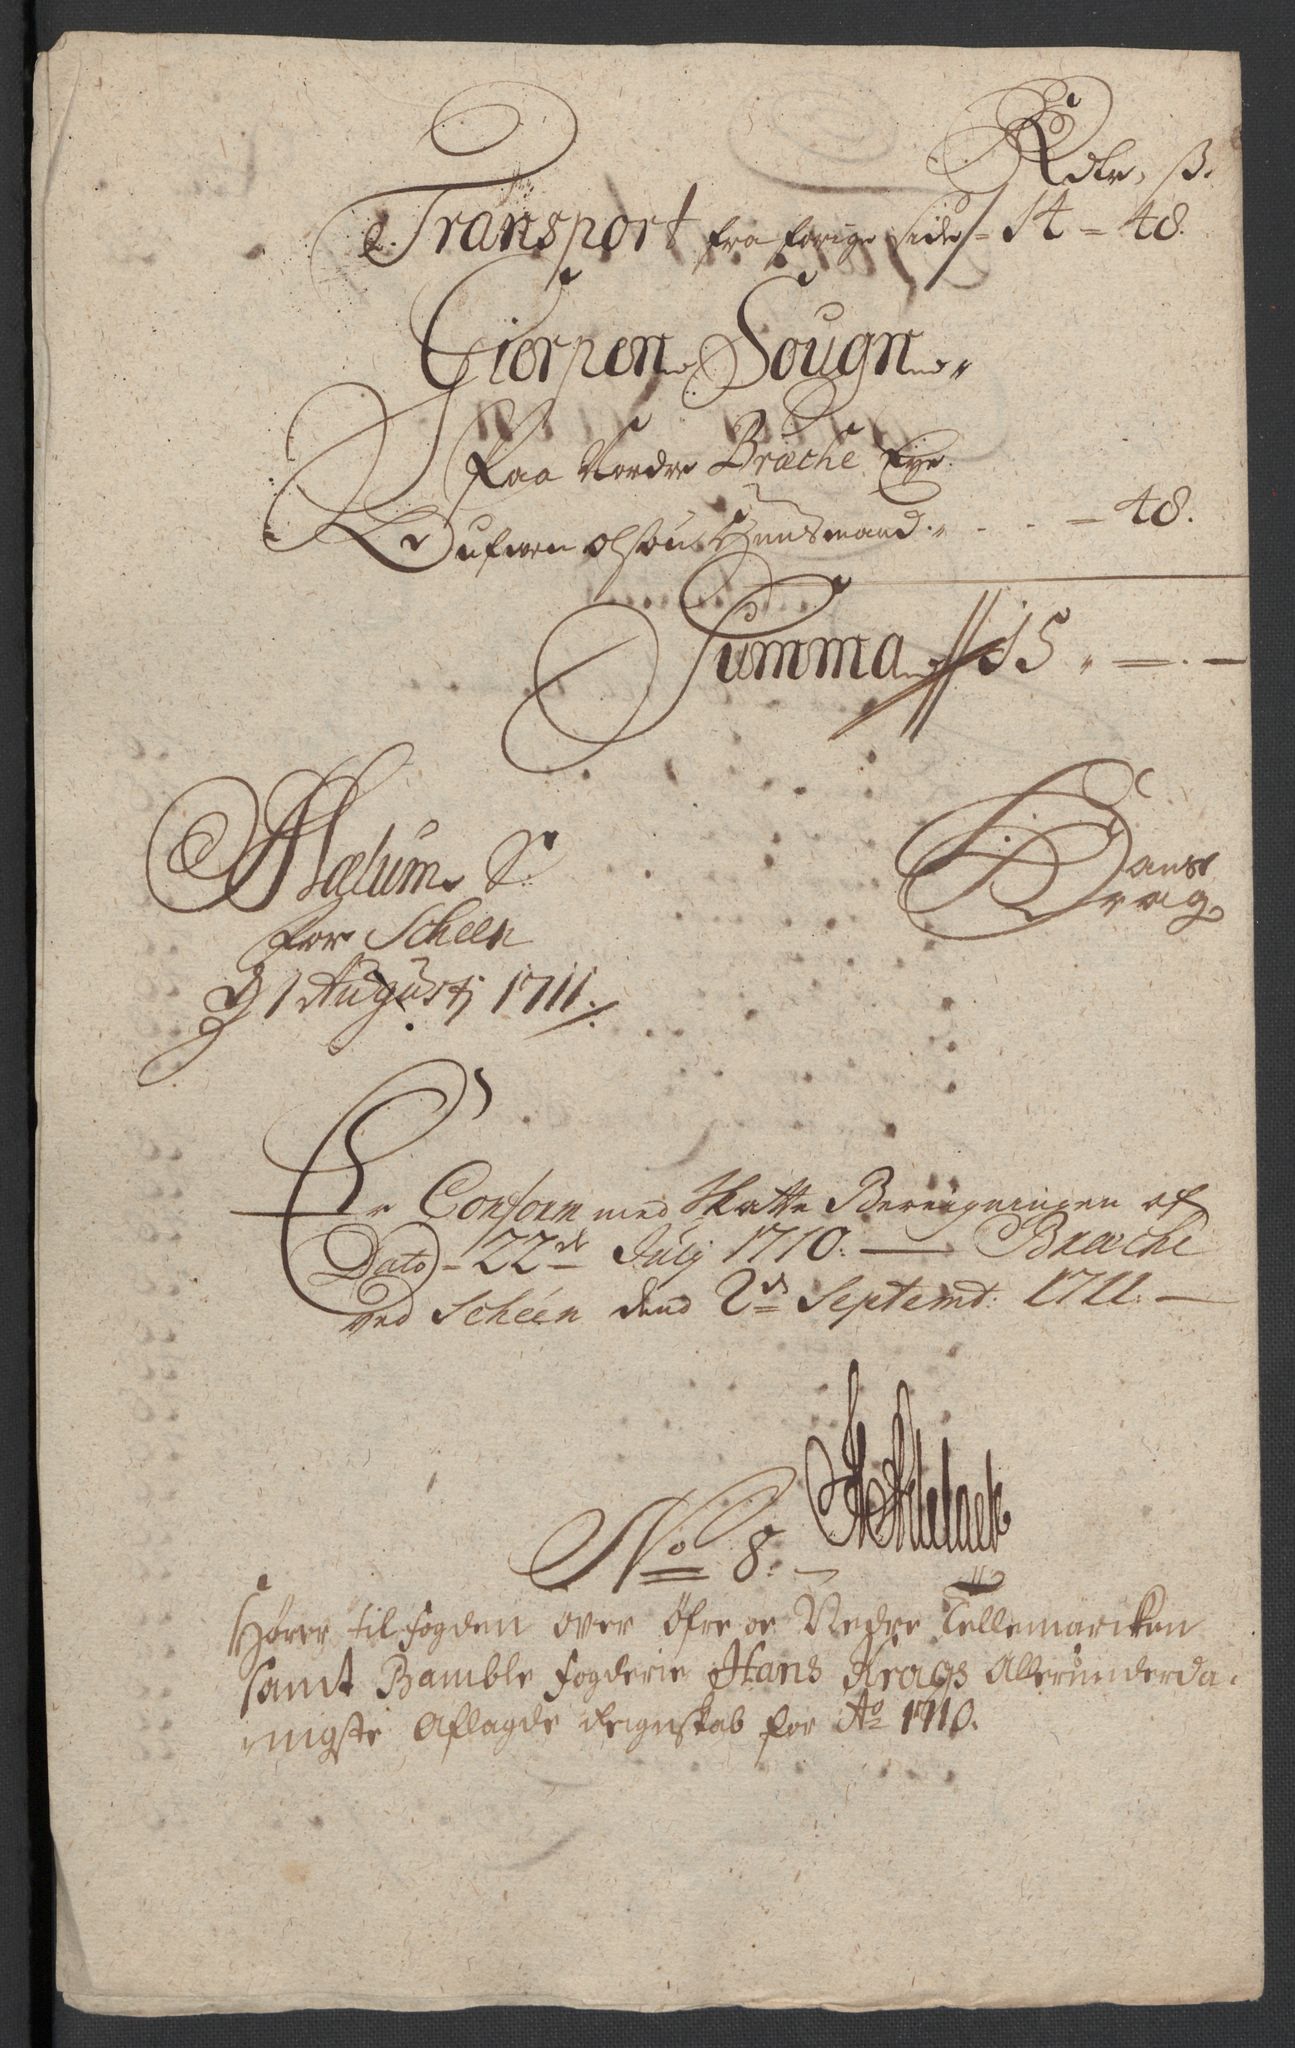 Rdlr, ß.
Transport fra forige side - 14 - 48.
Gierpen Sougn
Paa Nordre Bræche Eye
Olsøn Huusmand - - - 48.
Summa 15 - -
Hans
Krag
Mælum
for Scheen
d 1 Augustj 1711.
Er Conform med Skatte Beregningen af
Dato 22de Julj 1710. — Bræche
ved Scheen dend 2de Septembr: 1711. —
No 8.
Hører til fogden over Øfre oc Nedre Tellemarcken
samt Bamble fogderie Hans Krags Allerunderda-
nigste Aflagde Reignskab for Ao 1710.